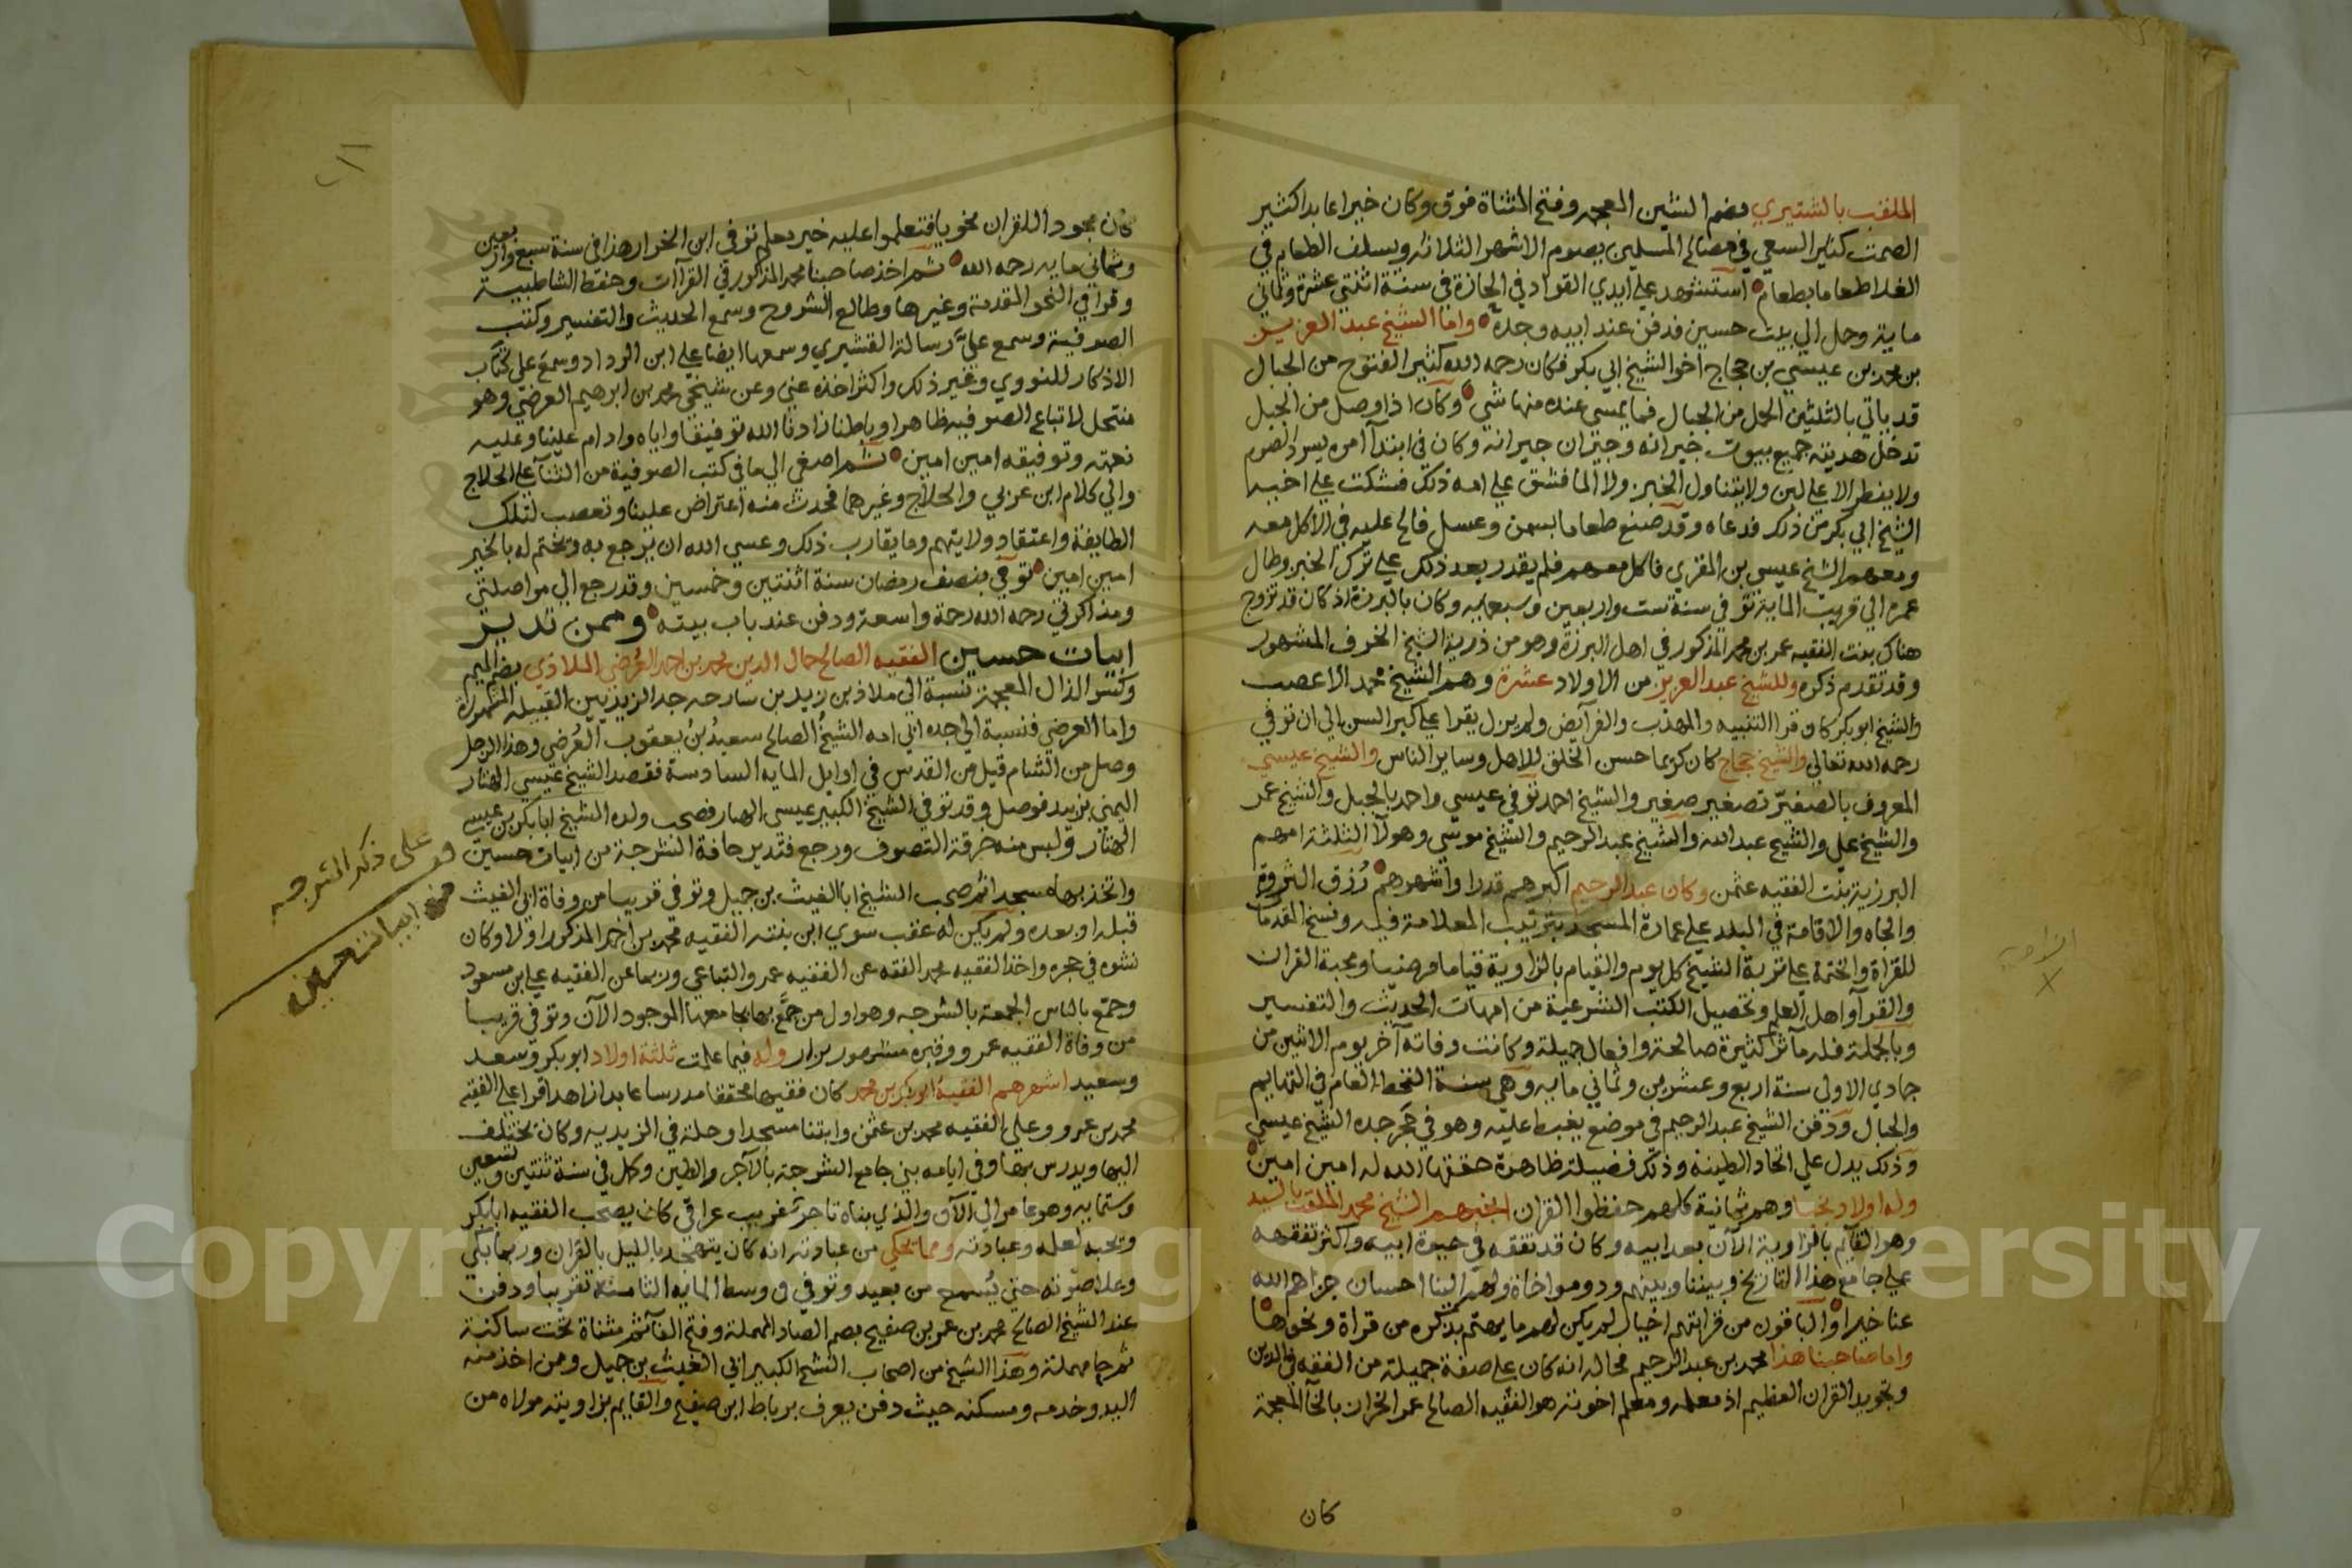 الملقب بالشتيري بضم الشين المعجمه وفتح المثناة فوق وكان خيرا عابدا كثير
الصمت كثير السعي في مصالح المسلمين يصوم الاشهر الثلاثه ويسلف الطعام في
الغلا طعاما بطعام استشهد على ايدي القواد في الجازة في سنة اثنتي عشرة وثماني
مايه وحمل الي بيت حسين فدفن عند ابيه وجده واما الشيخ عبد العزيز
بن محمد بن عيسي بن حجاج اخو الشيخ ابي بكر فكان رحمه الله كثير الفتوح من الجبال
قد ياتي بالثلثين الحمل من الجبال فما يمسي عنده منها شي وكان اذا وصل من الجبل
تدخل هديته جميع بيوت جيرانه وجيران جيرانه وكان في ابتدآ امره يسرد الصوم
ولا يفطر الا على لبن ولا يتناول الخبز ولا الما فشق علي امه ذلك فشكت علي اخيه
الشيخ ابي بكر من ذلك فدعاه وقد صنع طعاما بسمن وعسل فالح عليه في الاكل معه
ومعهم الشيخ عيسى بن المقري فاكل معهم فلم يقدر بعد ذلك علي ترك الخبز وطال
عمره الي قريب المايه توفي سنة ست واربعين وسبعمايه وكان بالبرزة اذ كان قد تزوج
هناك بنت الفقيه عمر بن محمد المذكور في اهل البرزة وهو من ذرية الشيخ الخرف المشهور
وقد تقدم ذكره وللشيخ عبد العزيز من الاولاد عشرة وهم الشيخ محمد الاعصب
والشيخ ابو بكر كان قرا التنبيه والمهذب والفرآيض ولم يزل يقرا علي كبر السن الي ان توفي
رحمه الله تعالي والشيخ حجاج كان كريما حسن الخلق للاهل وساير الناس والشيخ عيسي
المعروف بالصغيّر تصغير صغير والشيخ احمد توفي عيسي واحمد بالجبل والشيخ عمر
والشيخ علي والشيخ عبد الله والشيخ عبد الرحيم والشيخ موسي وهولآ الثلثة امهم
البرزية بنت الفقيه عثمن وكان عبد الرحيم اكبرهم قدرا واشهرهم رُزق الثروة
والجاه والاقامة في البلد علي عمارة المسجد بترتيب المعلامة فيه ونسخ المقدمات
للقراة والختمة علي تربة الشيخ كل يوم والقيام بالزاوية قياما مرضيا ومحبة القران
والقرآ واهل العلم وتحصيل الكتب الشرعية من امهات الحديث والتفسير
وبالجملة فله مآثر كثيرة صالحة وافعال جميلة وكانت وفاته آخر يوم الاثنين من
جمادي الاولي سنة اربع وعشرين وثماني مايه وهي سنة القحط العام في التهايم
والجبال ودفن الشيخ عبد الرحيم في موضع يغبط عليه وهو في حجر جده الشيخ عيسي
وذلك يدل علي اتحاد الطينه وذلك فضيلة ظاهرة حققها الله له امين امين
وله اولاد نجبا وهم ثمانية كلهم حفظوا القران انجبهم الشيخ محمد الملقب بالسيد
وهو القآيم بالزاوية الآن بعد ابيه وكان قد تفقه في حيوة ابيه واكثر تفقهه
علي جامع هذا التاريخ وبيننا وبينهم ود ومواخاة ولهم الينا احسان جزاهم الله
عنا خيرا والباقون من قرابتهم اخيار لم يكن لهم ما يهتم بذكره من قراة ونحوها
واما صاحبنا هذا محمد بن عبد الرحيم فحاله انه كان علي صفة جميلة من الفقه في الدين
وتجويد القران العظيم اذ معلمه ومعلم اخوته هو الفقيه الصالح عمر الخران بالخآ المعجمة
كان
كان مجودا للقران نحويا فتعلموا عليه خير معلم توفي ابن الخوار هذا في سنة سبع واربعين
وثماني مايه رحمه الله ثم اخذ صاحبنا محمد المذكور في القرآات وحفظ الشاطبية
وقرا في النحو المقدمة وغيرها وطالع الشروح وسمع الحديث والتفسير وكتب
الصوفية وسمع عليّ رسالة القشيري وسمعها ايضا علي ابن الرداد وسمع علي كتاب
الاذكار للنووي وغير ذلك واكثر اخذه عني وعن شيخي محمد بن ابرهيم العرضي وهو
منتحل لاتباع الصوفيه ظاهرا وباطنا زادنا الله توفيقا واياه وادام علينا وعليه
نعمته وتوفيقه امين امين ثم اصغي الي ما في كتب الصوفية من الثنآ علي الحلاج
والي كلام ابن عربي والحلاج وغيرهما فحدث منه اعتراض علينا وتعصب لتلك
الطايفة واعتقاد ولايتهم وما يقارب ذلك وعسي الله ان يرجع به ويختم له بالخير
امين امين توفي بنصف رمضان سنة اثنتين وخمسين وقد رجع الي مواصلتي
ومذاكرتي رحمه الله رحمة واسعة ودفن عند باب بيته وممن تدير
ابيات حسين الفقيه الصالح جمال الدين محمد بن احمد العُرضي الملاذي بضم الميم
وكسر الذال المعجمة نسبة الي ملاذ بن زيد بن سارحه جد الزيديين القبيله المشهورة
واما العرضي فنسبة الي جده ابي امه الشيخ الصالح سعيد بن يعقوب العُرضي وهذا الرجل
وصل من الشام قيل من القدس في اوايل المايه السادسة فقصد الشيخ عيسي الهتار
اليمني بزبيد فوصل وقد توفي الشيخ الكبير عيسى الهتار فصحب ولده الشيخ ابا بكر بن عيسى
الهتار ولبس منه خرقة التصوف ورجع فتدير حافة الشرجة من ابيات حسين
واتخذ بها مسجدا ثم صحب الشيخ ابا الغيث بن جميل وتوفي قريبا من وفاة ابي الغيث
قبله او بعده ولم يكن له عقب سوي ابن بنته الفقيه محمد بن احمد المذكور اولا وكان
نشوه في حجره واخذ الفقيه محمد الفقه عن الفقيه عمرو التباعي وربما عن الفقيه علي بن مسعود
وجمّع بالناس الجمعة بالشرجه وهو اول من جمَّع بها بجامعها الموجود الآن وتوفي قريبا
من وفاة الفقيه عمرو وقبره مشهور يزار وله فيما علمت ثلثة اولاد ابو بكر وسعد
وسعيد اشهرهم الفقيه ابو بكر بن محمد كان فقيها محققا مدرسا عابدا زاهدا قرا علي الفقيه
محمد بن عمرو وعلي الفقيه محمد بن عثمن وابتنا مسجدا وحلة في الزيديه وكان يختلف
اليها ويدرس بها وفي ايامه بني جامع الشرجة بالآجر والطين وكمل في سنة ثنتين وتسعين
وستمايه وهو عامر الي الآن والذي بناه تاجر غريب عراقي كان يصحب الفقيه ابا بكر
ويحبه لعلمه وعبادته ومما يحكي من عبادته انه كان يتهجد بالليل بالقران وربما بكي
وعلا صوته حتي يُسمع من بعيد وتوفي في وسط المايه الثامنة تقريبا ودفن
عند الشيخ الصالح محمد بن عمر بن صفيح بضم الصاد المهملة وفتح الفآ ثم مثناة تحت ساكنة
ثم حا مهملة وهذا الشيخ من اصحاب الشيخ الكبير ابي الغيث بن جميل ومن اخذ منه
اليد وخدمه ومسكنه حيث دفن يعرف برباط ابن صفيح والقايم بزاويته مولاه من
على ذكر الشرجه
من ابيات حسين
Copyright © King Saud University